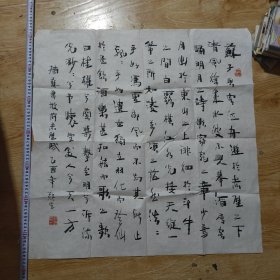 蘇子與客泛舟遊於赤壁之下
清風徐來水波不興舉酒屬客
誦明月之詩歌窈窕之章少焉
月出於東山之上徘徊於斗牛
之間白露橫江水光接天縱一
葦之所如凌萬頃之茫然浩浩
乎如馮虛御風而不知其所止
飄飄乎如遺世獨立羽化而登仙
於是飲酒樂甚扣舷而歌之歌
曰桂棹兮蘭槳擊空明兮泝流
光渺渺兮予懷望美人兮天一方
前赤壁賦 乙酉年